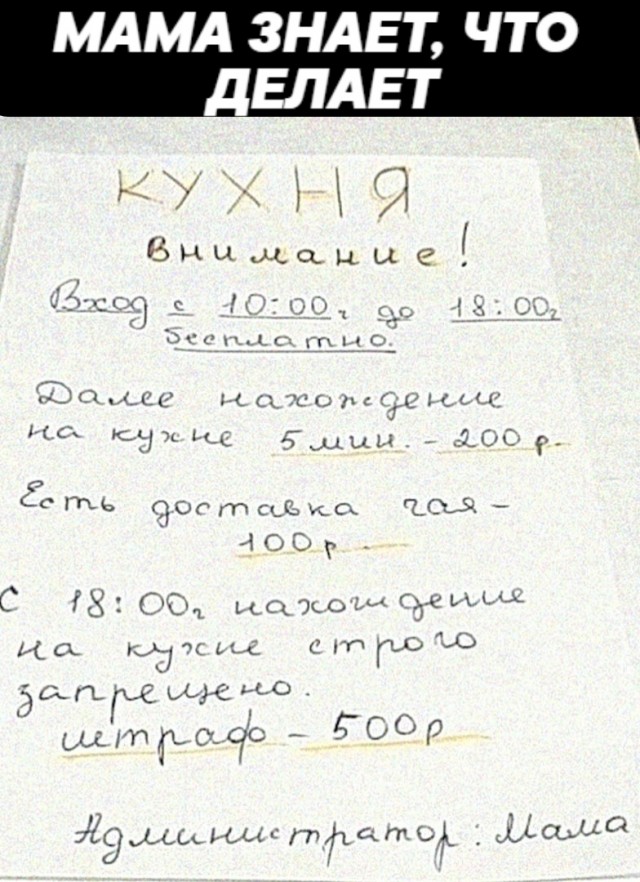 МАМА ЗНАЕТ, ЧТО
ДЕЛАЕТ
КУХНЯ
Внимание!
Вход с 10:00ч до 18:00ч
бесплатно.
Далее нахождение
на кухне 5 мин. - 200 р.
Есть доставка чая -
100 р
С 18:00ч нахождение
на кухне строго
запрещено.
штраф - 500 р
Администратор: Мама